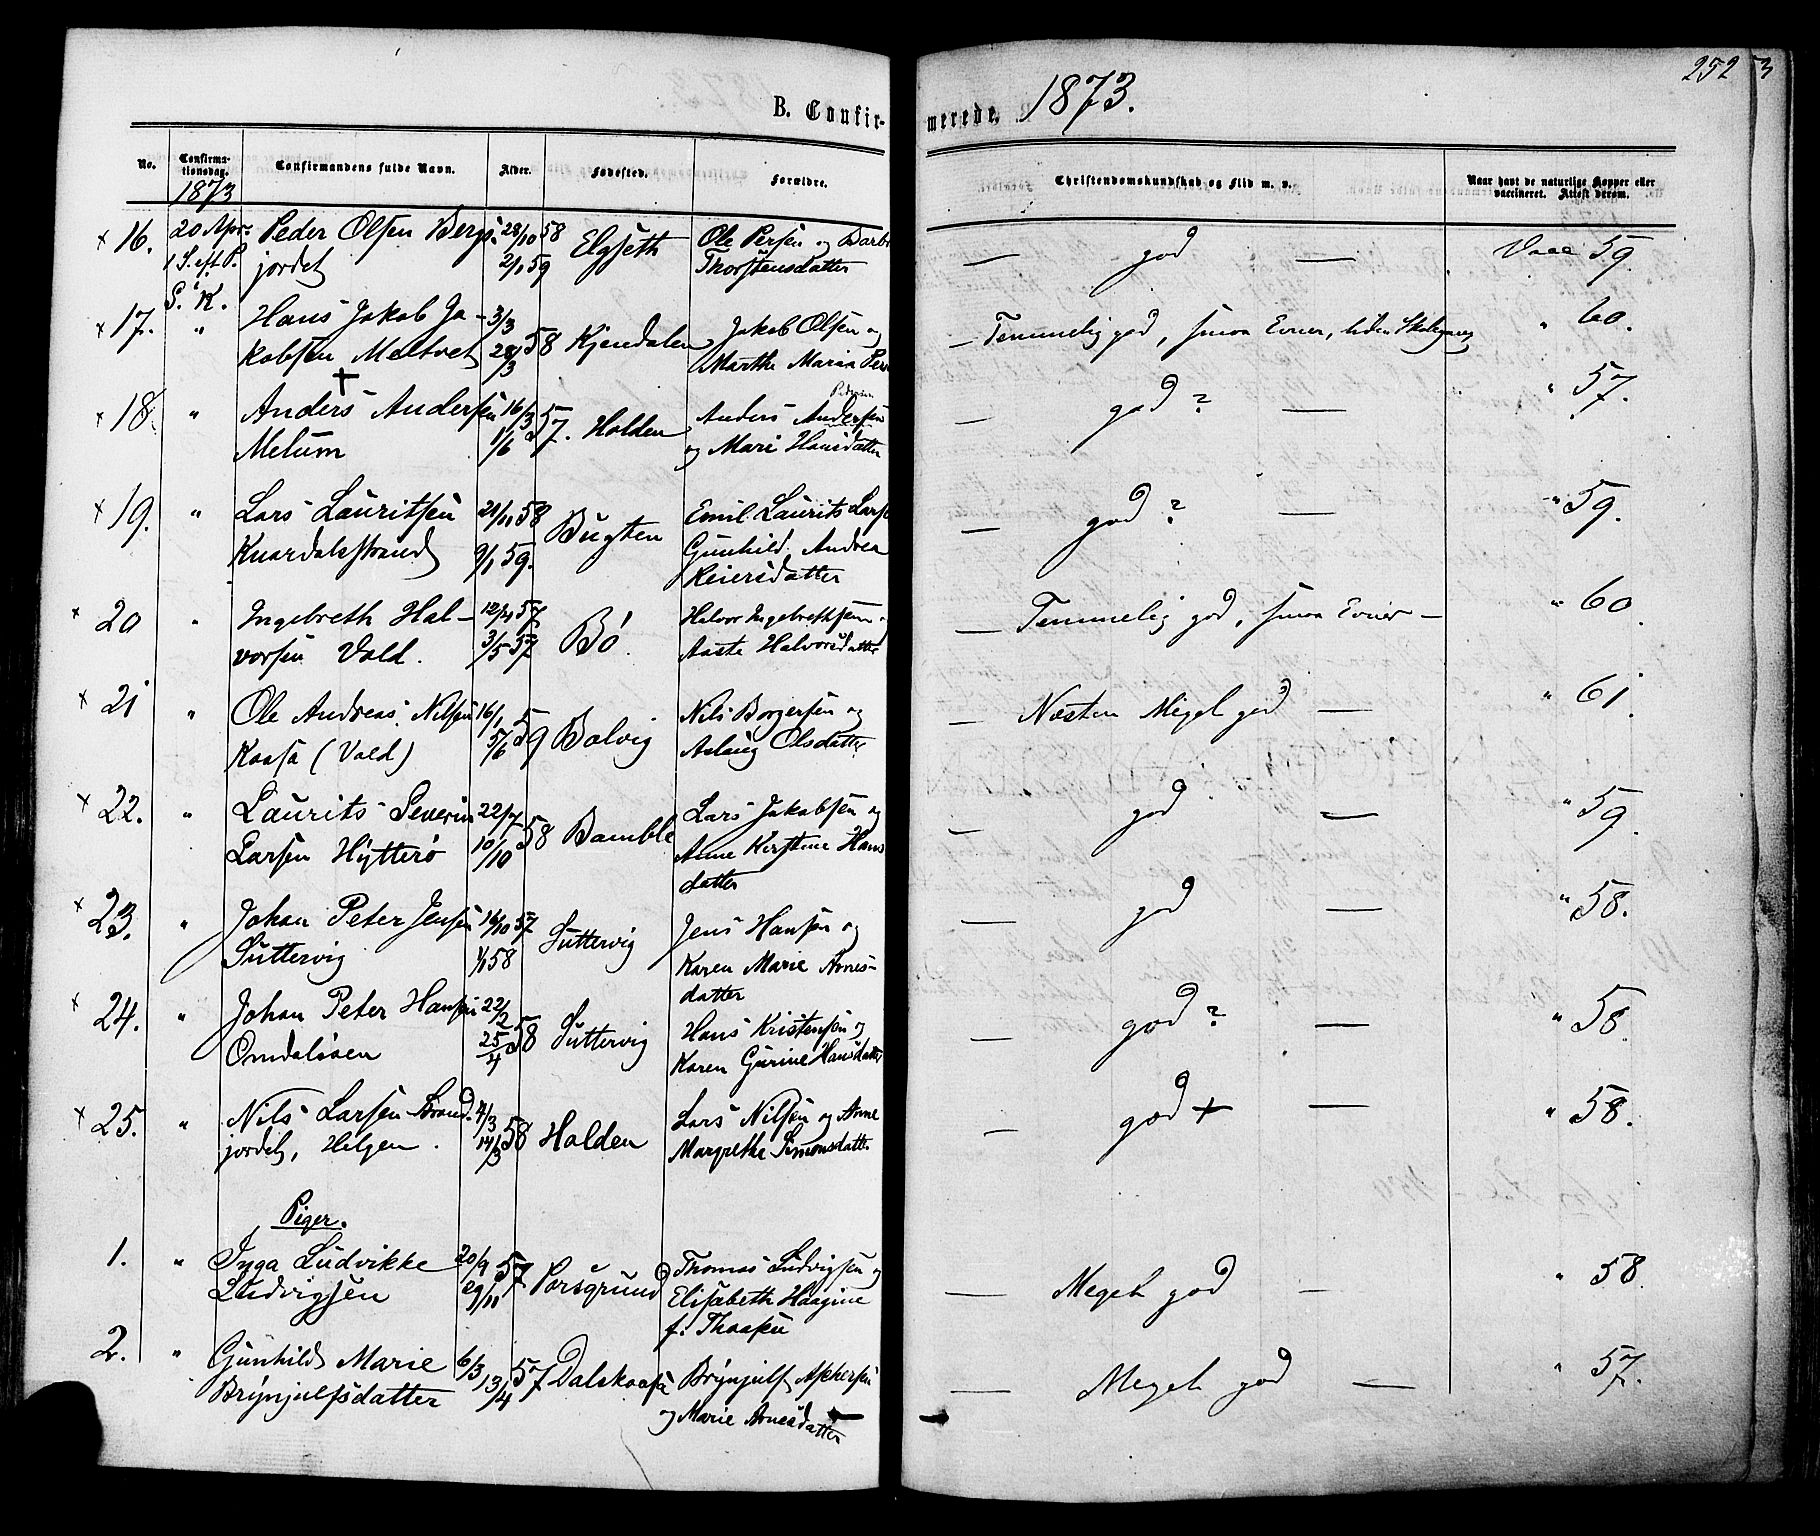 252 3
B. Confir-
merede. 1873.
No.
Confirma-
tionsdag.
1873
Confirmandens fulde Navn.
Alder.
Fødested.
Forældre.
Christendomskundskab og Flid m. v.
Naar havt de naturlige Kopper eller
vaccineret. Attest derom.
× 16. 20 Apr. Peder Olsen Bergs- 28/10 58 Elgseth Ole Persen og Barb — god — Vacc 59.
1 S. eft. P. jordet 2/1 59 Thorstensdatter
S. K.
× 17. " Hans Jakob Ja- 3/3 58 Kjendalen Jakob Olsen og — Temmelig god, smaa Evner, liden Skolegang " 60.
kobsen Meltvet 28/3 Marthe Maria Pers
+
Pedersen
× 18. " Anders Andersen 16/3 57. Holden Anders Andersen — god ? — " 57.
Melum 1/6 og Mari Hansdatter
× 19. " Lars Lauritsen 21/11 58 Bugten Emil Laurits Larse — god ? — " 59.
Knardalsstrand 9/1 59. Gunhild Andrea
Reiersdatter
× 20 " Ingebreth Hal- 12/4 57 Bö. Halvor Ingebrethsen — Temmelig god, smaa Evner — " 60.
vorsen Vold. 3/5 57 Aaste Halvorsdatter
× 21 " Ole Andreas Nilsen 16/1 59 Bolvig Nils Borgersen og — Næsten Meget god — " 61.
Kaasa (Vold) 5/6 Aslaug Olsdatter
× 22. " Laurits Severin 22/7 58 Bamble Lars Jakobsen og — god — " 59.
Larsen Hytterø 10/10 Anne Kirstine Hans
datter
× 23. " Johan Peter Jensen 16/10 57 Suttervig Jens Hansen og — god — " 58.
Suttervig 1/1 58 Karen Marie Arnes-
datter
× 24. " Johan Peter Hansen 22/2 58 Suttervig Hans Kristensen og — god ? — " 58.
Omdalsøen 25/4 Karen Gurine Hansdatter
× 25. " Nils Larsen Strand- 4/3 58 Holden Lars Nilsen og Anne — god + — " 58.
jordet, Helgen. 14/3 Margrethe Simonsdatter
Piger.
1. " Inga Ludvikke 20/9 57 Porsgrund Thomas Ludvigsen og — Meget god - " 58.
Ludvigsen 29/11 Elisabeth Haagine
f. Thoasen
2. " Gunhild Marie 6/3 57 Dalskaasa Brynjulf Askersen — Meget god — " 57.
Brynjulfsdatter 13/4 og Marie Arnesdatter